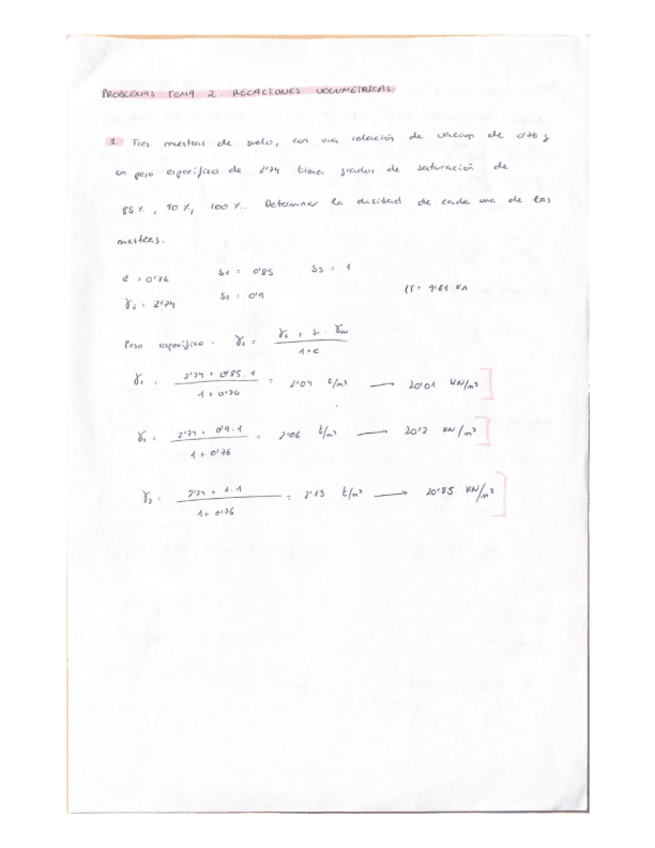 PROBLEMAS TEMA 2. RELACIONES VOLUMETRICAS
1. Tres muestras de suelo, con una relación de vacíos de 0'76 y
un peso específico de 2'74 tienen grados de saturación de
85 %, 90 %, 100 %. Determinar la densidad de cada una de las
muestras.
e = 0'76 S1 = 0'85 S3 = 1
γs = 2'74 S2 = 0'9 1T = 9'81 KN
Peso específico = γ1 = γs + Sr · γw / 1+e
γ1 = 2'74 + 0'85 · 1 / 1 + 0'76 = 2'04 t/m³ → 20'01 KN/m³
γ2 = 2'74 + 0'9 · 1 / 1 + 0'76 = 2'06 t/m³ → 20'2 KN/m³
γ3 = 2'74 + 1 · 1 / 1 + 0'76 = 2'13 t/m³ → 20'85 KN/m³